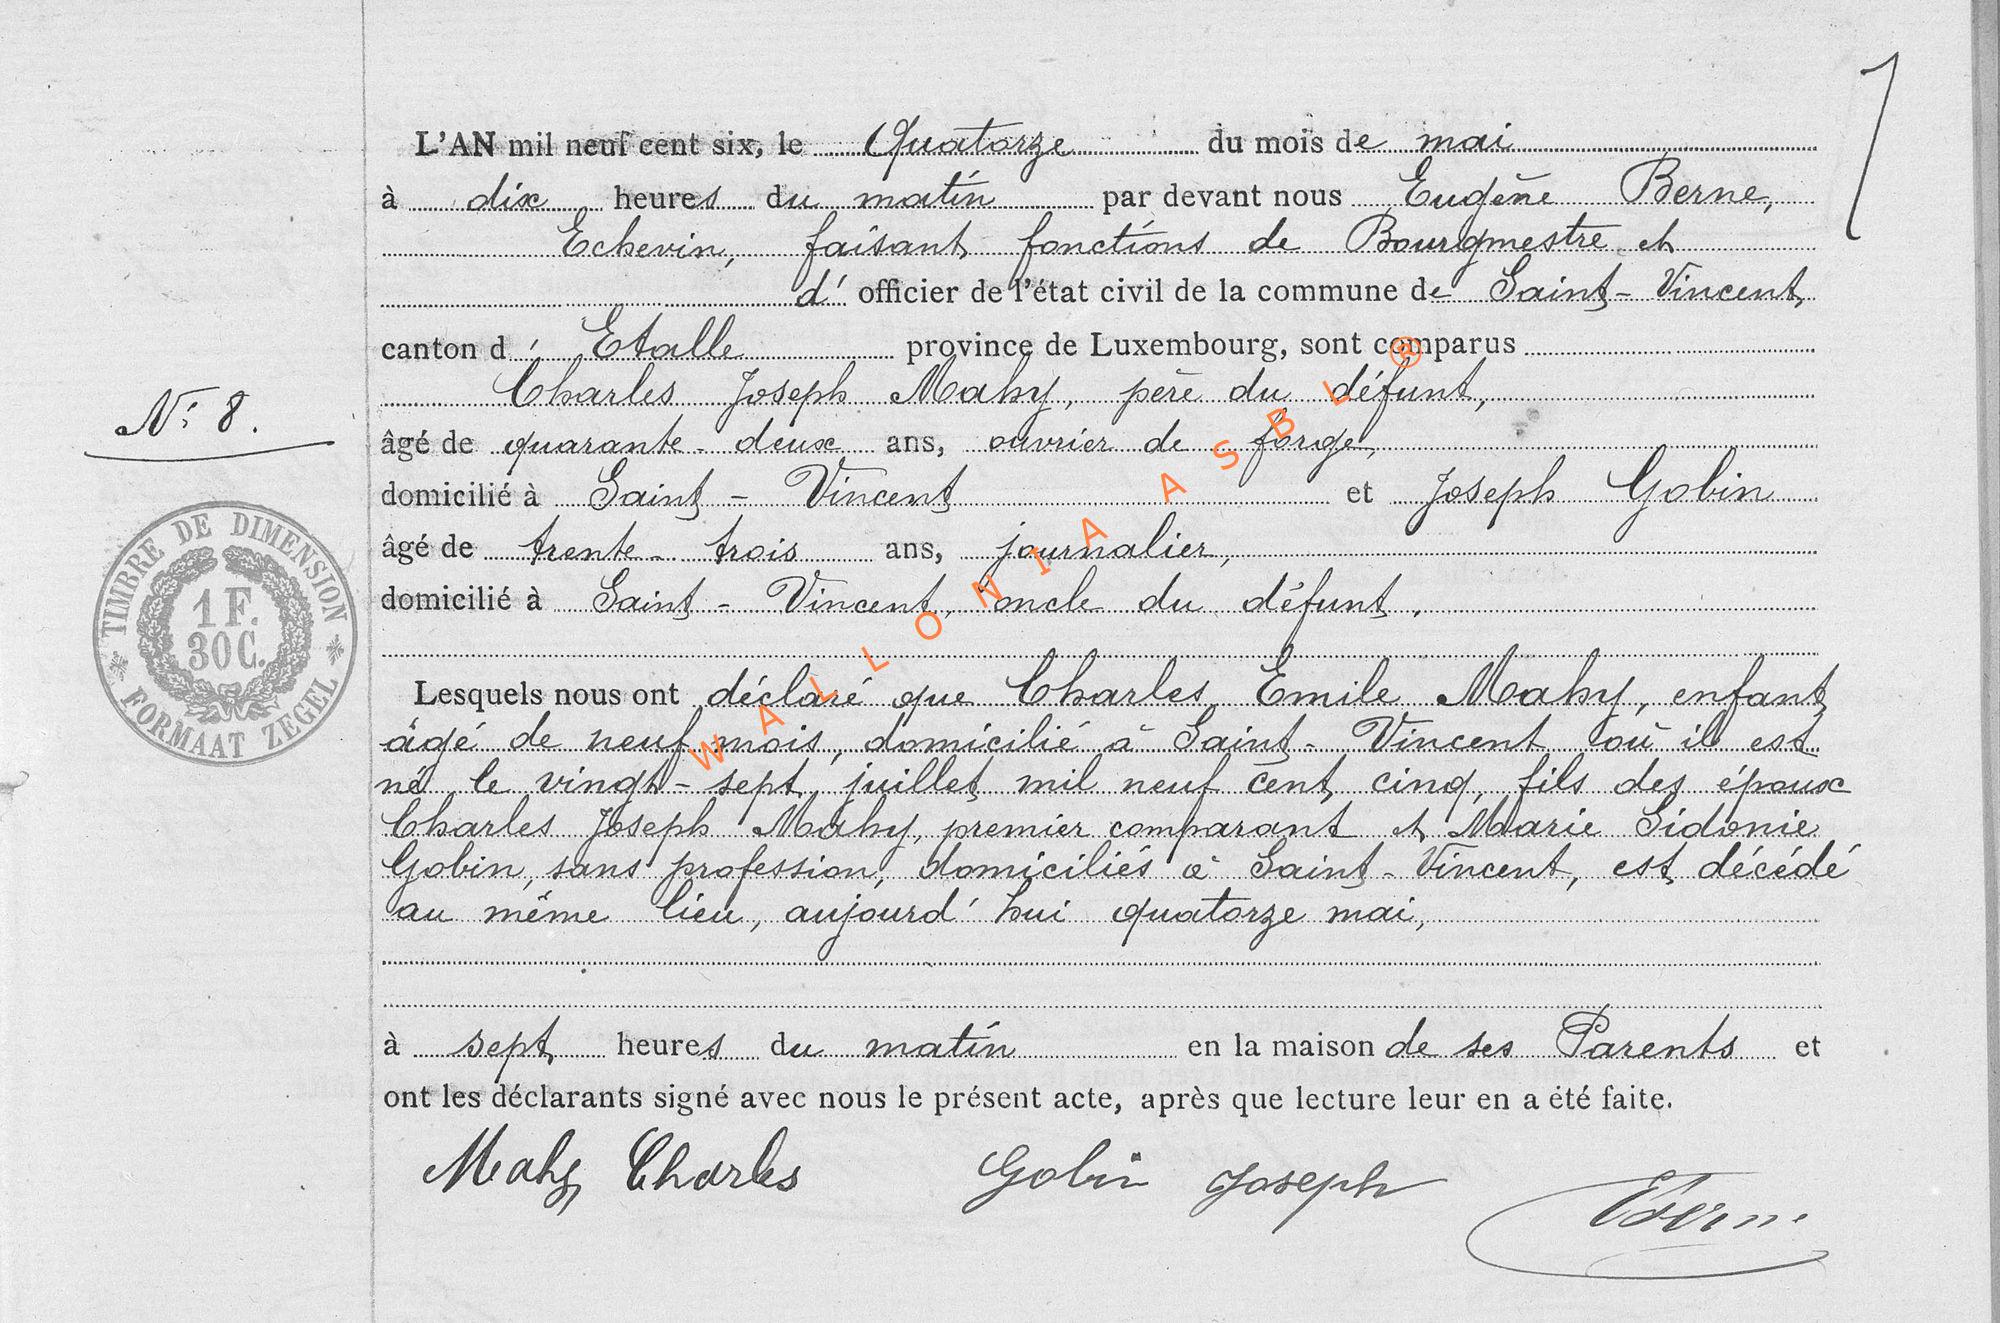 7
L'AN mil neuf cent six, le Quatorze du mois de mai
à dix heures du matin par devant nous Eugène Berne,
Echevin, faisant fonctions de Bourgmestre et
d' officier de l'état civil de la commune de Saint-Vincent,
canton d' Etalle province de Luxembourg, sont comparus
Charles Joseph Mahy, père du défunt,
N° 8.
âgé de quarante-deux ans, ouvrier de forge,
domicilié à Saint-Vincent et Joseph Gobin
âgé de trente-trois ans, journalier,
domicilié à Saint-Vincent, oncle du défunt.
TIMBRE DE DIMENSION
1 F.
30 C.
FORMAAT ZEGEL
Lesquels nous ont déclaré que Charles Emile Mahy, enfant
âgé de neuf mois, domicilié à Saint-Vincent où il est
né le vingt-sept juillet mil neuf cent cinq, fils des époux
Charles Joseph Mahy, premier comparant et Marie Sidonie
Gobin, sans profession, domiciliés à Saint-Vincent, est décédé
au même lieu, aujourd'hui quatorze mai,
à sept heures du matin en la maison de ses Parents et
ont les déclarants signé avec nous le présent acte, après que lecture leur en a été faite.
Mahy Charles Gobin Joseph EBerne
WALLONIA ASBL ®